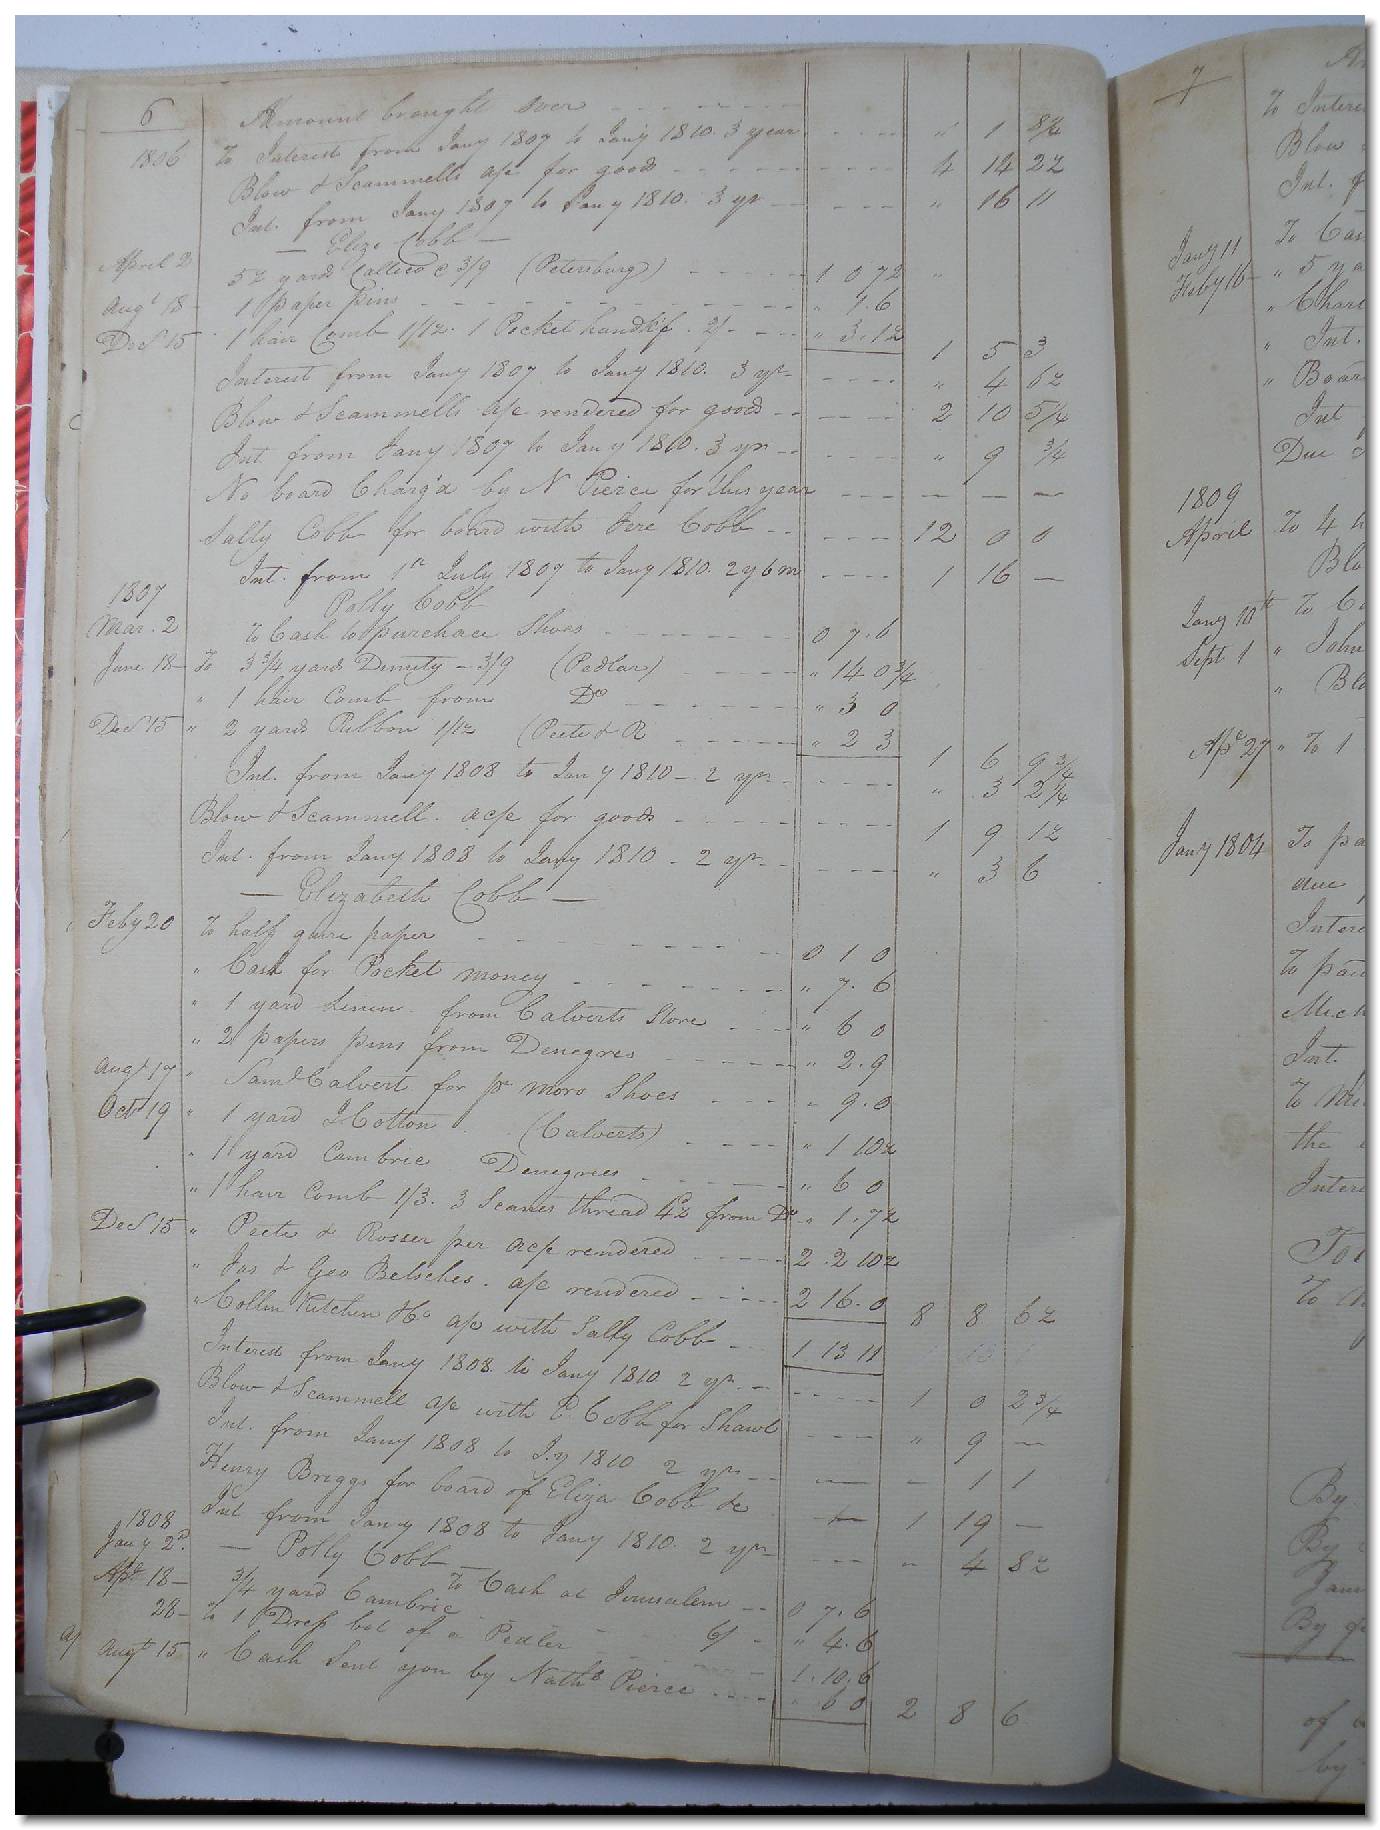 6 Amount brought over
1806 To Interest from Jany 1807 to Jany 1810. 3 year " 1 8½
Blow & Scammells a/c for goods 4 14 2½
Int. from Jany 1807 to Jany 1810. 3 yr " 16 11
— Eliza Cobb —
April 2 5½ yards Callico @ 3/9 (Petersburg) 1 0 7½ "
Augt 18 1 paper pins " 1.6
Decr 15 1 hair Comb 1/1½. 1 Pocket handkf. 2/- " 3.1½ 1 5 3
Interest from Jany 1807 to Jany 1810. 3 yr " 4 6½
Blow & Scammells a/c rendered for goods 2 10 5¼
Int from Jany 1807 to Jany 1810. 3 yr " 9 ¾
No board Charg'd by N Pierce for this year — — —
Sally Cobb for board with Jere Cobb 12 0 0
Int. from 1st July 1807 to Jany 1810. 2y 6m 1 16 —
1807 Polly Cobb
Mar. 2 To Cash to purchace Shoes 0 7.6
June 18 To 3¾ yards Dimity - 3/9 (Pedlar) " 14 0¾
" 1 hair Comb from Do " 3 0
Decr 15 " 2 yards Ribbon 1/1½ (Peete & R " 2 3 1 6 9¾
Int. from Jany 1808 to Jany 1810 - 2 yr " 3 2¼
Blow & Scammell. ac/c for goods 1 9 1½
Int. from Jany 1808 to Jany 1810 - 2 yr " 3 6
— Elizabeth Cobb —
Feby 20 To half quire paper 0 1 0
" Cash for Pocket money " 7.6
" 1 yard Linen from Calverts Store " 6 0
" 2 papers pins from Denegres " 2.9
Augt 17 " Saml Calvert for pr moro Shoes " 9.0
Octr 19 " 1 yard Cotton (Calverts) " 1 10½
" 1 yard Cambric Denegres " 6 0
" 1 hair Comb 1/3. 3 Scanes thread 4½ from Do " 1.7½
Decr 15 " Peete & Rosser per ac/c rendered 2.2 10½
" Jas & Geo Belsches. a/c rendered 2 16.0 8 8 6½
" Collin Kitchen & Co a/c with Sally Cobb 1 13 11
Interest from Jany 1808 to Jany 1810 2 yr 1 0 2¾
Blow & Scammell a/c with E Cobb for Shawl " 9 —
Int. from Jany 1808 to Jy 1810 2 yr — 1 1
Henry Briggs for board of Eliza Cobb &c 1 19 —
Int from Jany 1808 to Jany 1810. 2 yr " 4 8½
1808 — Polly Cobb —
Jany 2d. To Cash at Jerusalem 0 7.6
Apr 18 ¾ yard Cambric 6/ " 4.6
28 To 1 Dress bot of a Pedler 1.10.6
Augt 15 " Cash Sent you by Nathl Pierce " 6 0 2 8 6
7
To Interes
Blow
Int. f
Jany 11 To Cas
Feby 16 " 5 ya
" Char
" Int.
" Boar
Int
Due
1809
April To 4
Blo
Jany 10th To C
Sept 1 " John
" Blo
Apl 27 " To 1
Jany 1804 To pa
due
Intere
To paid
Mich
Int.
To
the
Intere
To
To
By
By
Jan
By
of
by